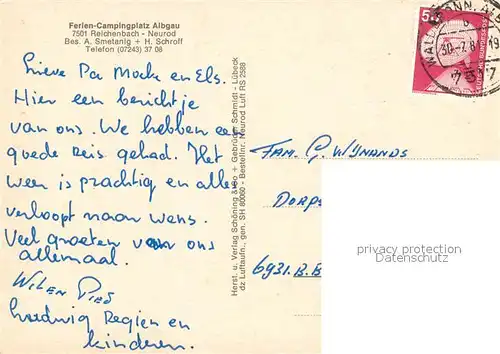 Ferien-Campingplatz Albgau
7501 Reichenbach - Neurod
Bes. A. Smetanig + H. Schroff
Telefon (07243) 37 08
Lieve Pa Moeke en Els.
Hier een berichtje
van ons. We hebben een
goede reis gehad. Het
weer is prachtig en alles
verloopt naar wens.
Veel groeten van ons
allemaal.
Wil en Piet
Ludwig Regien en
kinderen.
Herst. u. Verlag Schöning & Co + Gebrüder Schmidt - Lübeck
dz Luftaufn., gen. SH 80060 - Bestellnr. Neurod Luft RS 2568
50
30.-7.8
75
Fam. G. Wijnands
Dorps
6931. B.B
privacy protection
Datenschutz